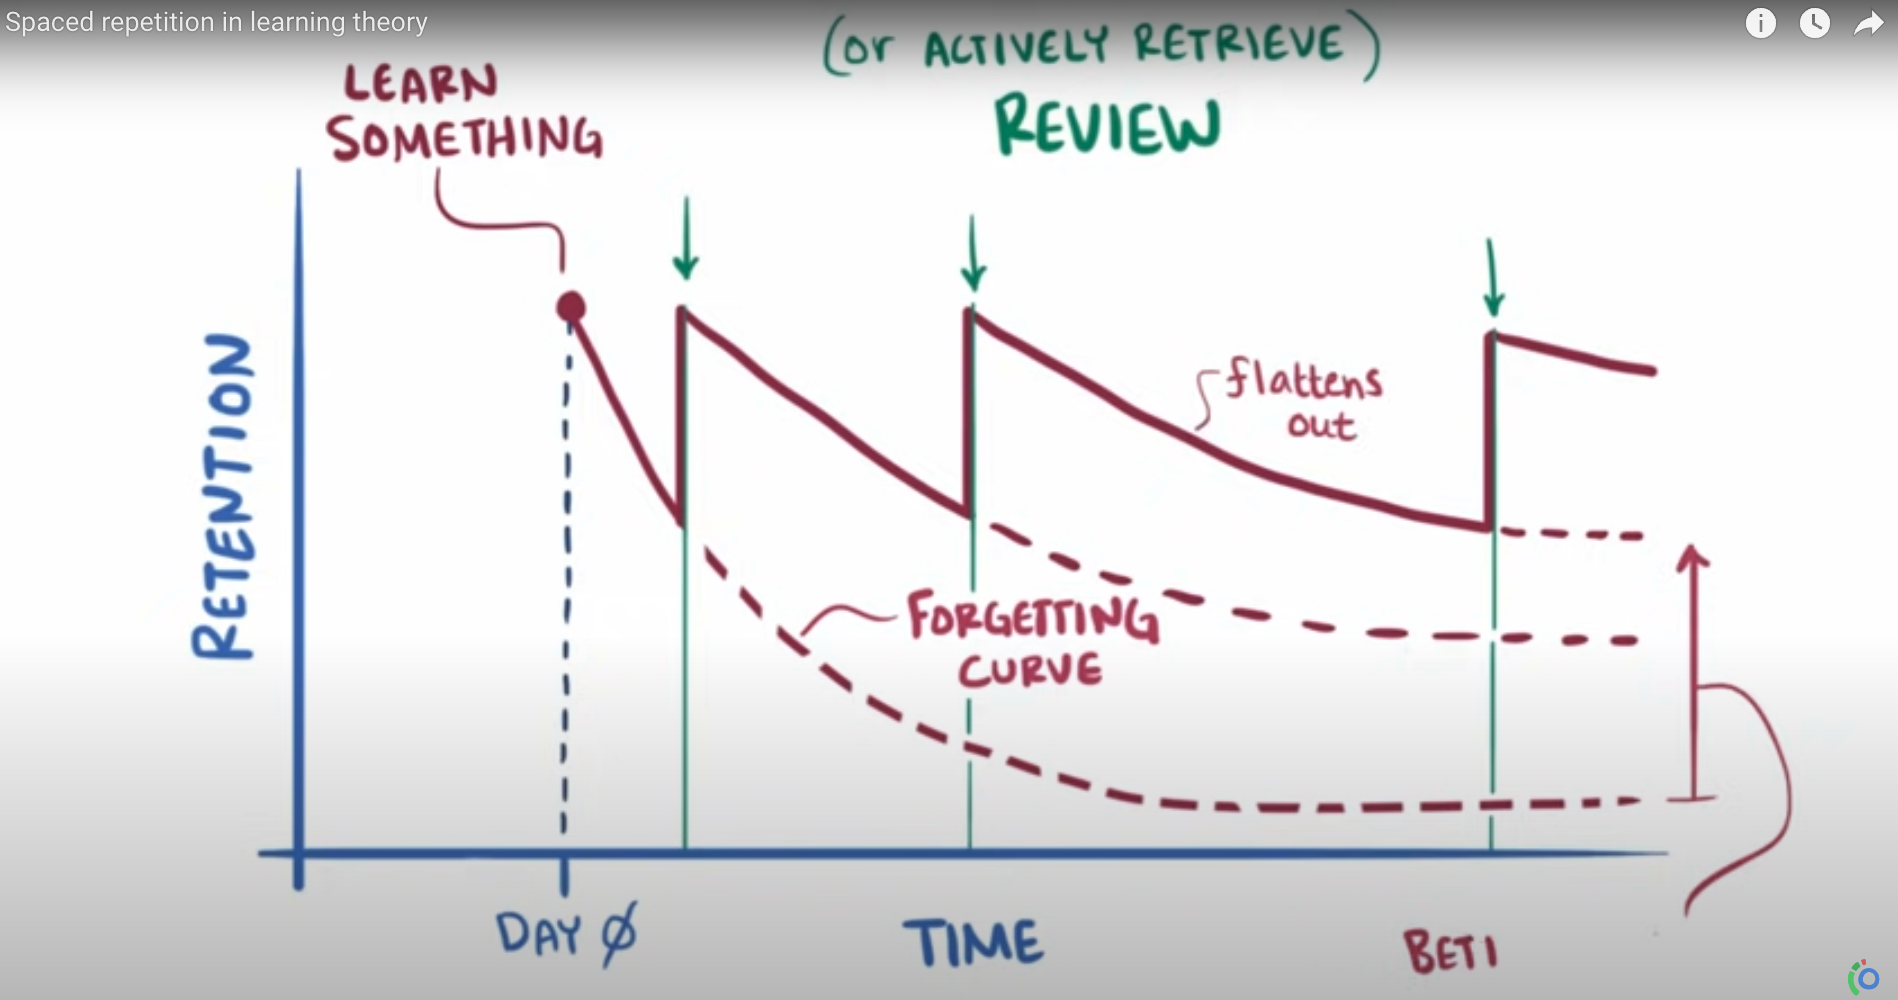 Spaced repetition in learning theory
(or ACTIVELY RETRIEVE)
REVIEW
LEARN
SOMETHING
RETENTION
flattens
out
FORGETTING
CURVE
DAY Ø
TIME
BETI